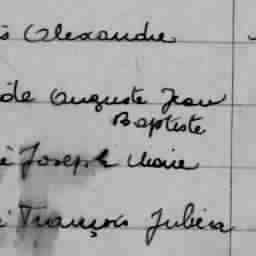 Alexandre
de Auguste Jean
Baptiste
Joseph Marie
François Julien